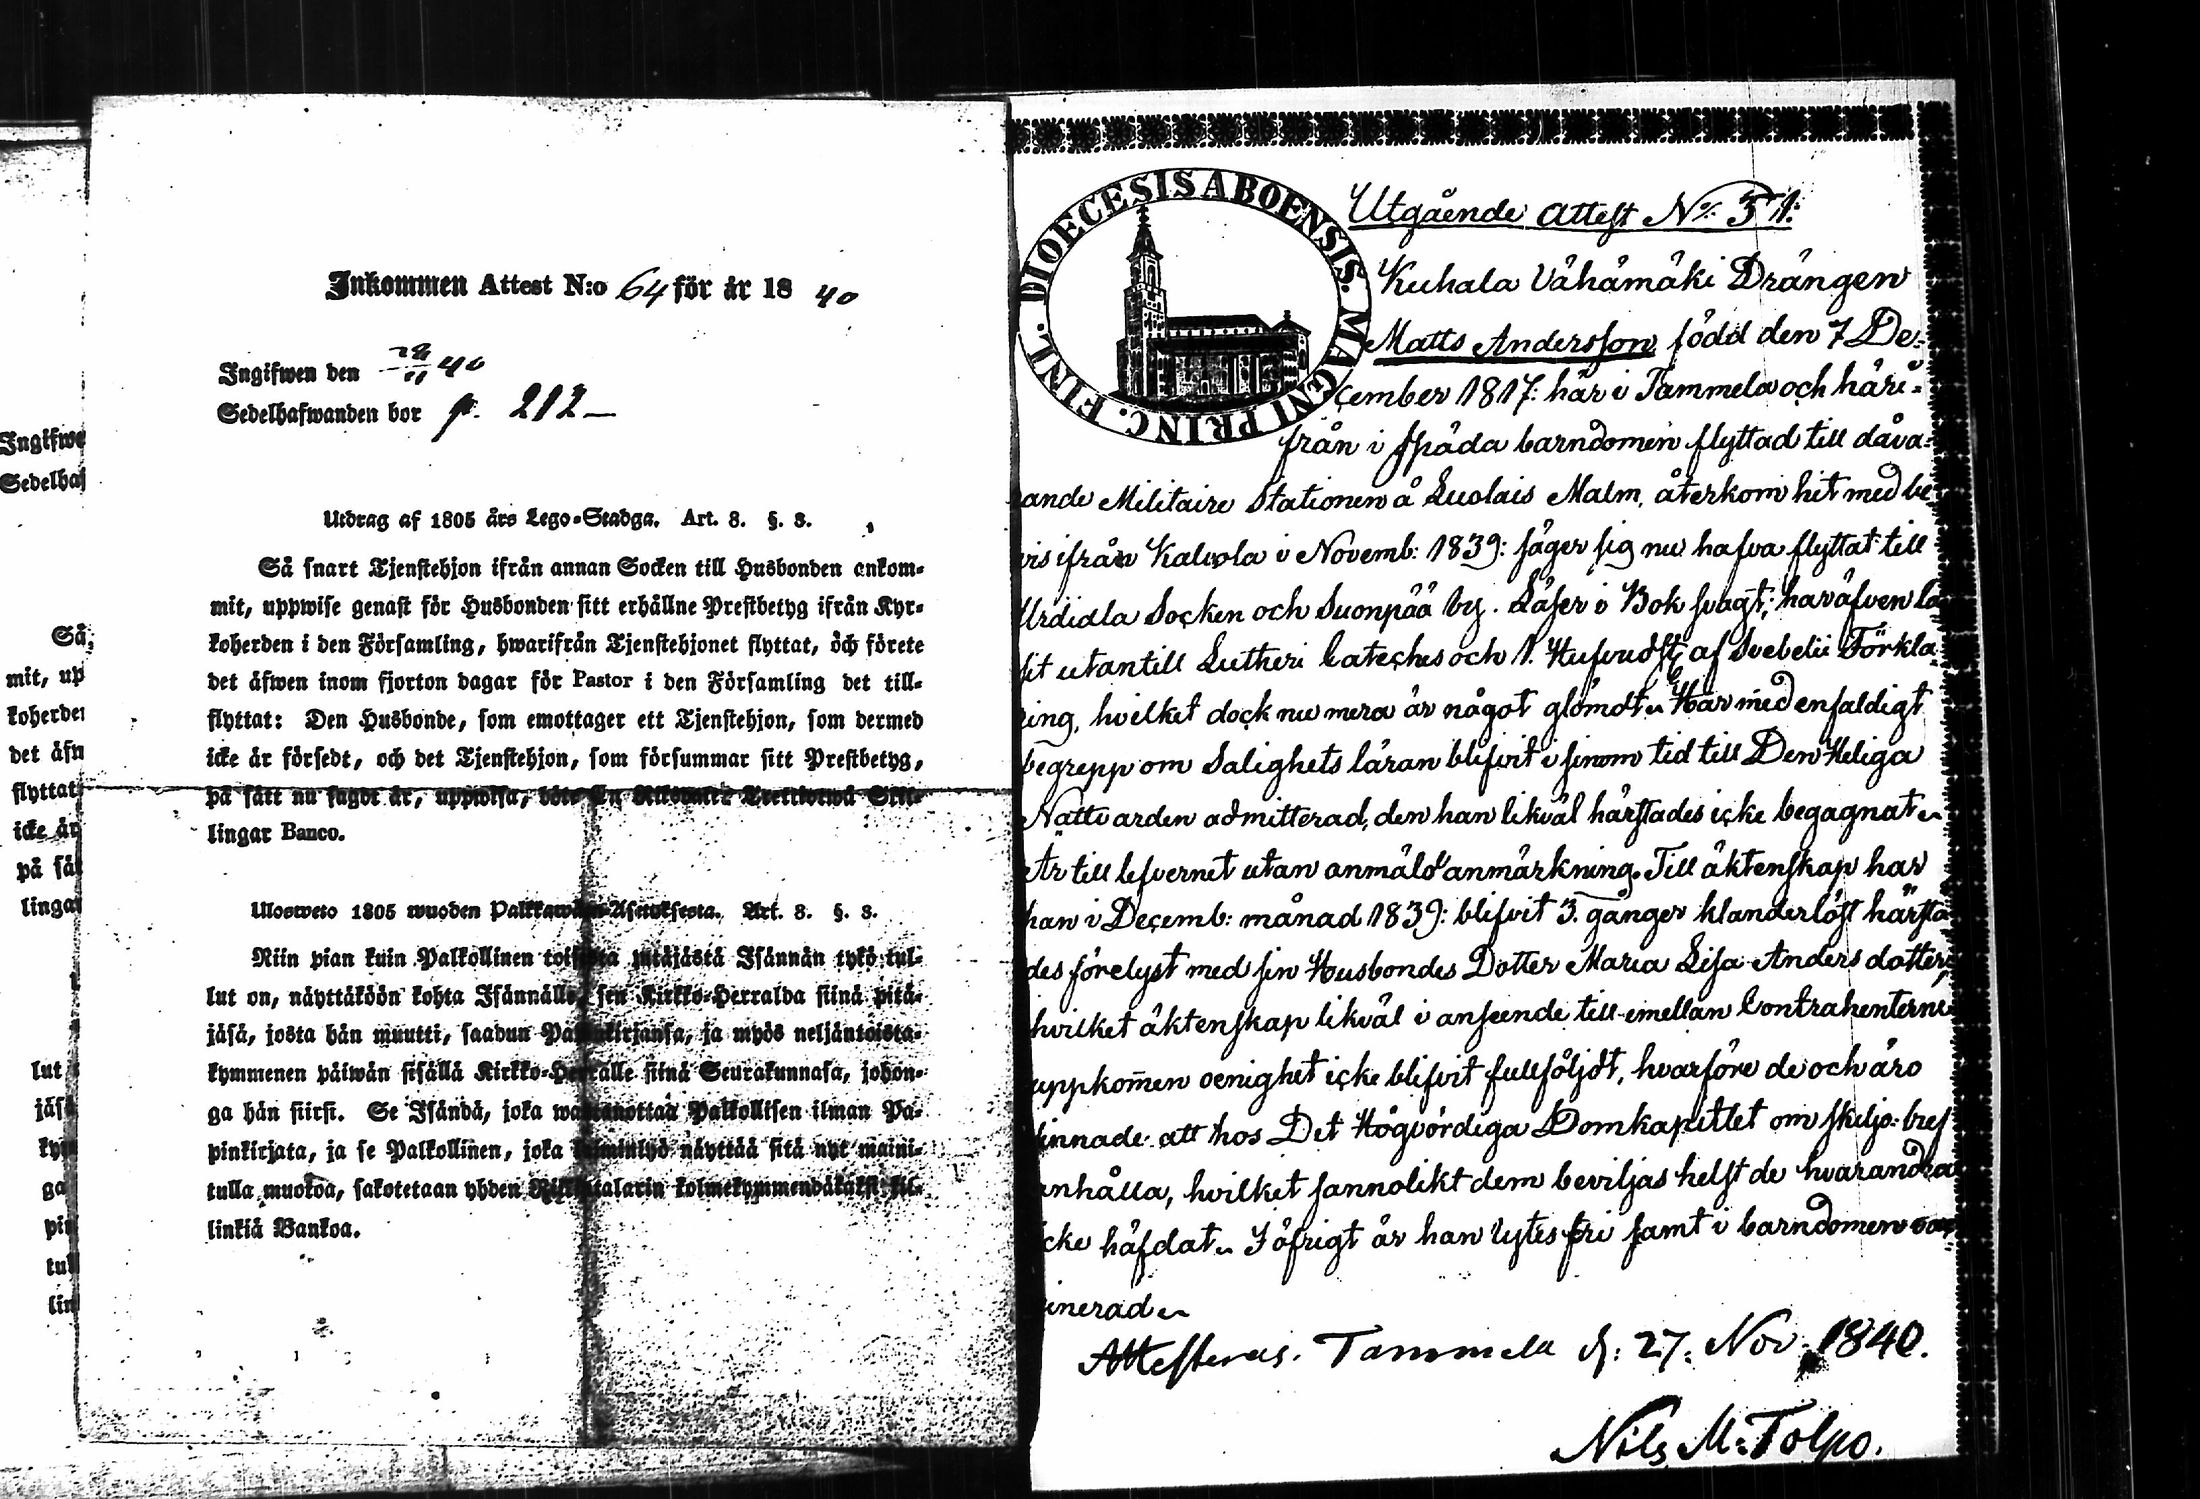 Inkommen Attest N:o 64 för år 1840
Ingifwen den 28/11 40
Sedelhafwanden bor p. 212 —
Utdrag af 1805 års Lego-Stadga. Art. 8. §. 8.
Så snart Tjenstehjon ifrån annan Socken till Husbonden ankom-
mit, uppwise genast för Husbonden sitt erhållne Prestbetyg ifrån Kyr-
koherden i den Församling, hwarifrån Tjenstehjonet flyttat, och förete
det äfwen inom fjorton dagar för Pastor i den Församling det till-
flyttat: Den Husbonde, som emottager ett Tjenstehjon, som dermed
icke är försedt, och det Tjenstehjon, som försummar sitt Prestbetyg,
på sätt nu sagdt är, uppwisa, böte En Riksdaler Trettiotwå Skil-
lingar Banco.
Ulosweto 1805 wuoden Palkkawäen Asetuksesta. Art. 8. §. 8.
Niin pian kuin Palkollinen toisesta pitäjästä Isännän tykö tul-
lut on, näyttäköön kohta Isännälle, sen Kirkko-Herralda siinä pitä-
jäsä, josta hän muutti, saadun Papinkirjansa, ja myös neljäntoista-
kymmenen päiwän sisällä Kirkko-Herralle siinä Seurakunnasa, johon-
ga hän siirsi. Se Isändä, joka wastanottaa Palkollisen ilman Pa-
pinkirjata, ja se Palkollinen, joka laiminlyö näyttää sitä nyt maini-
tulla muotoa, sakotetaan yhden Riksitalarin kolmekymmendäkaksi kil-
linkiä Bankoa.
Ingifwe
Sedelhaf
Så
mit, up
koherde
det äfw
flyttat
icke är
på sät
lingar
lut
jäsä
kym
ga
pin
tul
lin
DIOECESIS ABOENSIS. MAGNI PRINC. FINL.
Utgående Attest No. 51.
Kuhala Vähämäki Drängen
Matts Andersson född den 7 De-
cember 1817: här i Tammela och häri-
från i späda barndomen flyttad till dåva-
rande Militaire Stationen å Luolais Malm, återkom hit med be-
vis ifrån Kalvola i Novemb: 1839: säger sig nu hafva flyttat till
Urdidla Socken och Suonpää by. Läser i Bok svagt; har äfven lä-
sit utantill Lutheri Cateches och 1. Hufvudst. af Svebelii Förkla-
ring, hvilket dock nu mera är något glömdt. Har med enfaldigt
begrepp om Salighets läran blifvit i sinom tid till Den Heliga
Nattvarden admitterad, den han likväl härstädes icke begagnat.
Är till lefvernet utan anmäld anmärkning. Till äktenskap har
han i Decemb: månad 1839: blifvit 3. gånger klanderlöst härstä-
des förelyst med sin Husbondes Dotter Maria Lisa Anders dotter,
hvilket äktenskap likväl i anseende till emellan Contrahenterne
uppkommen oenighet icke blifvit fullföljdt, hvarföre de och äro
sinnade att hos Det Högvördiga Domkapitlet om skiljo-bref
anhålla, hvilket sannolikt dem beviljas helst de hvarandra
icke häfdat. I öfrigt är han lytes fri samt i barndomen vac-
cinerad.
Attesteras. Tammela d: 27. Nov. 1840.
Nils M. Tolpo.